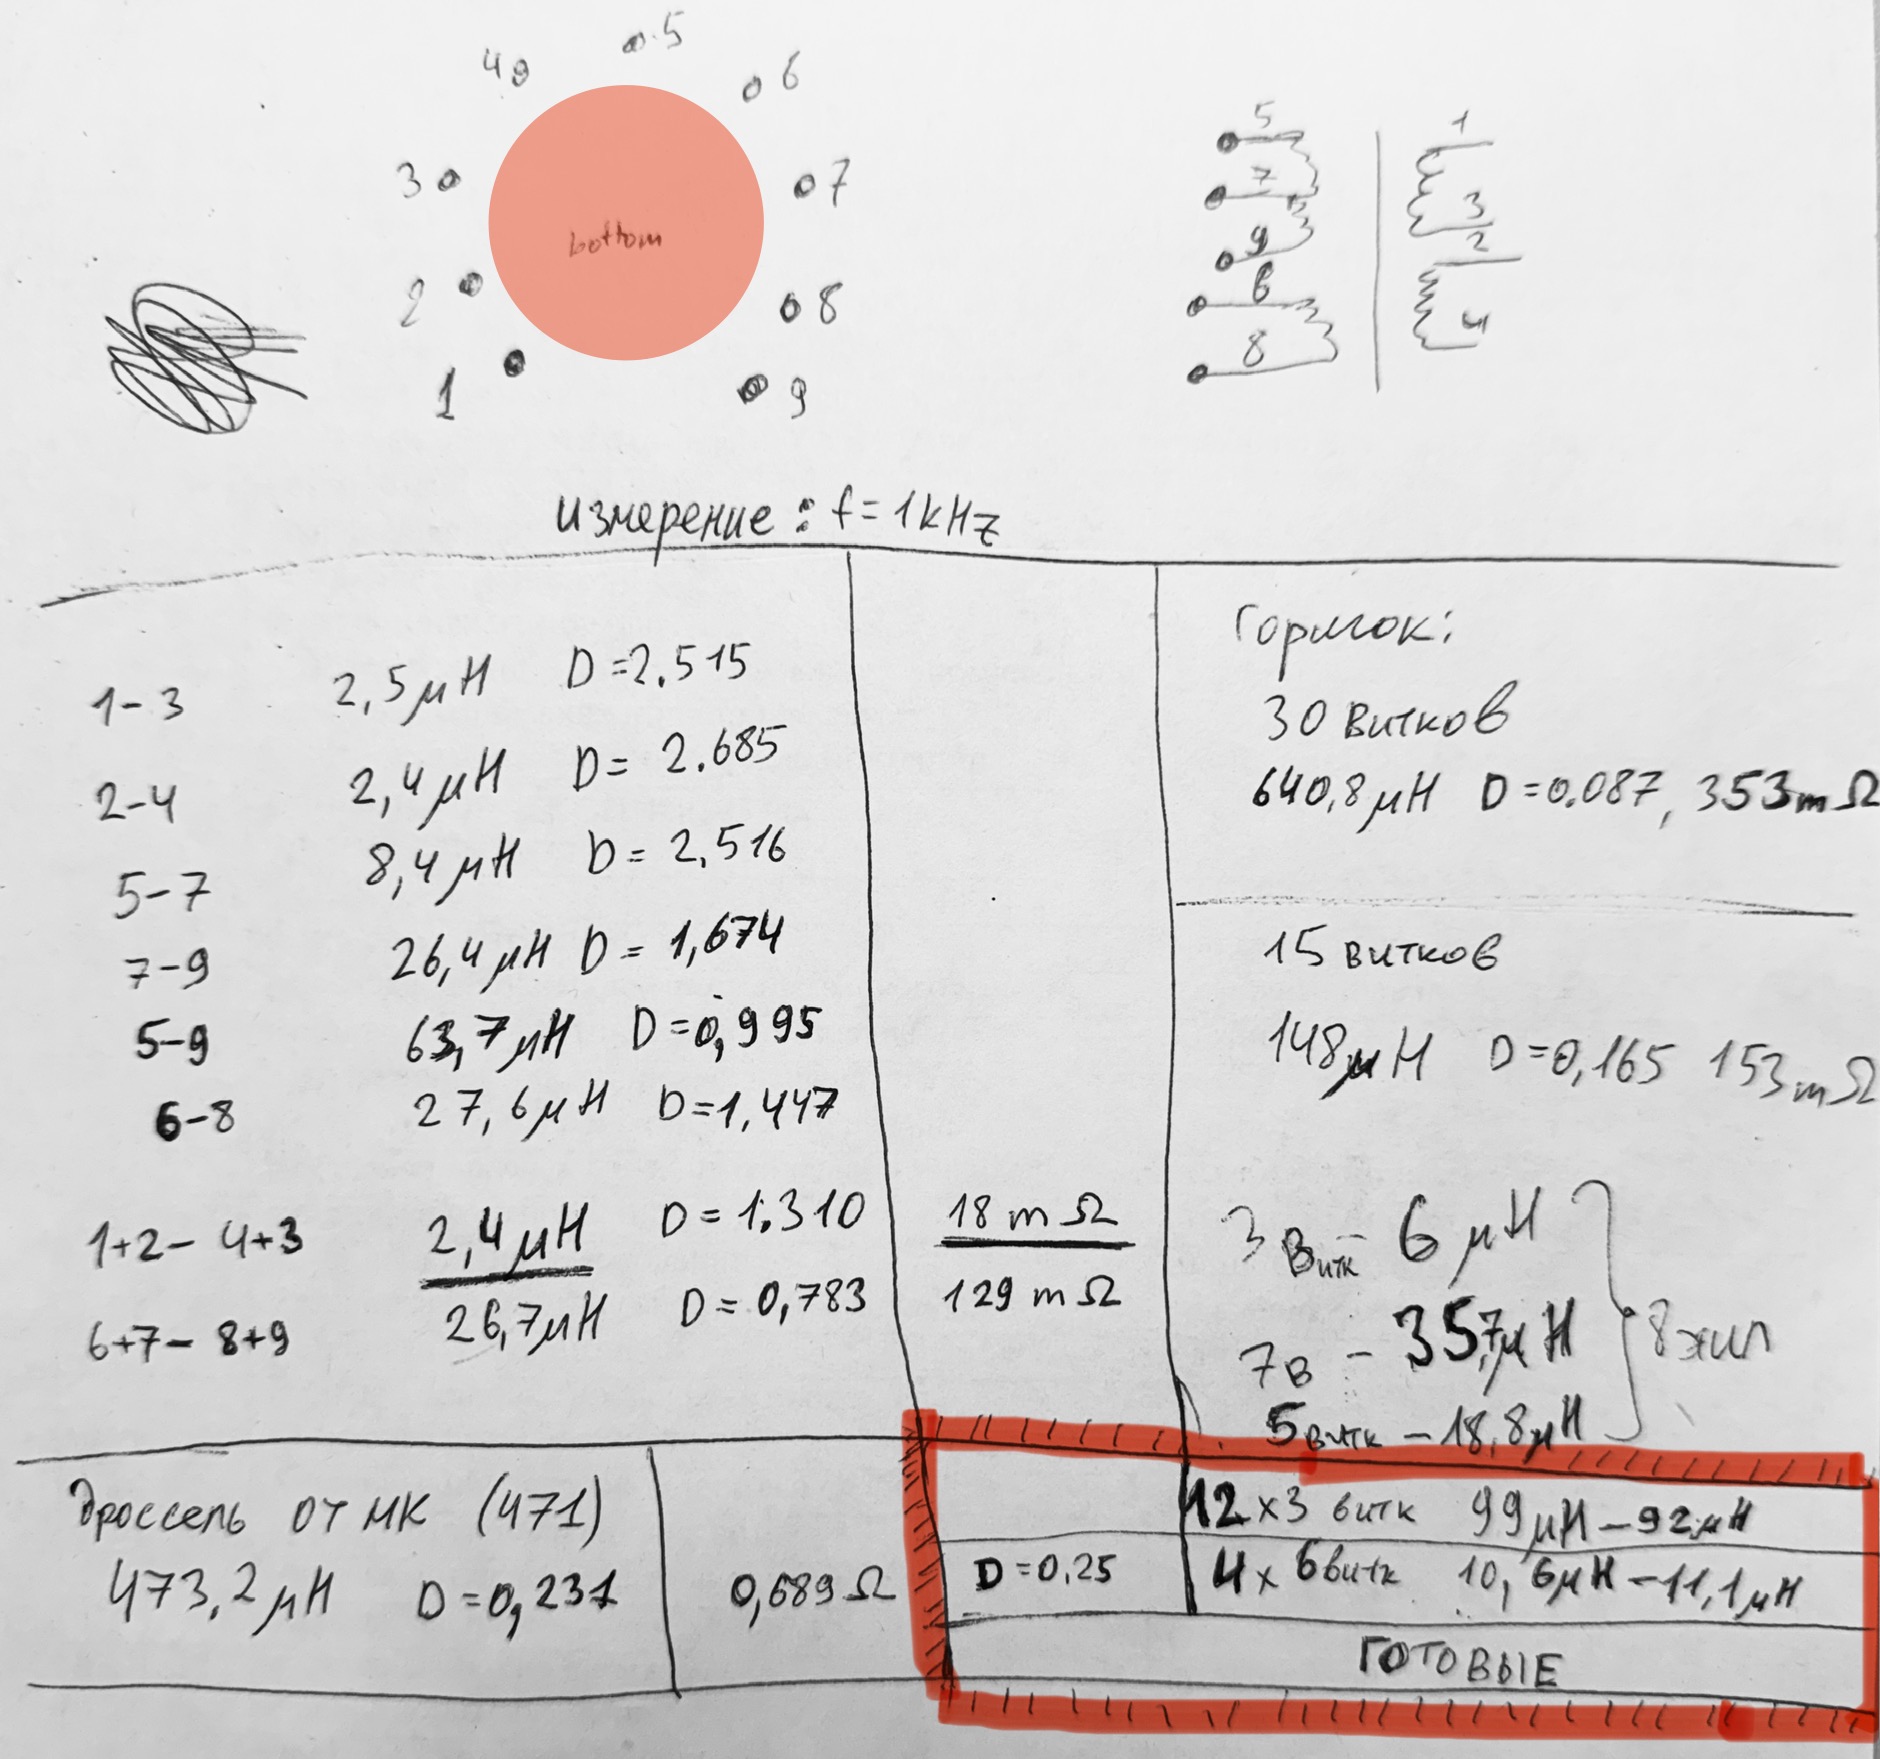 5
4
6
3
7
bottom
2
8
1
9
5
7
9
6
8
1
3
2
4
Измерение: f=1kHz
1-3 2,5μH D=2.515
2-4 2,4μH D= 2.685
5-7 8,4μH D= 2,516
7-9 26,4μH D= 1,674
5-9 63,7μH D=0,995
6-8 27,6μH D=1,447
1+2- 4+3 2,4μH D=1.310 18mΩ
6+7- 8+9 26,7μH D=0,783 129mΩ
Горшок:
30 витков
640,8μH D=0.087, 353mΩ
15 витков
148μH D=0,165 153mΩ
3 витк - 6μH
7в - 35,7μH
5витк - 18,8μH
8 жил
Дроссель от МК (471)
473,2μH D=0,231 0,689Ω
12 x 3 витк 99μH-92μH
D=0,25 4 x 6витк 10,6μH-11,1μH
ГОТОВЫЕ